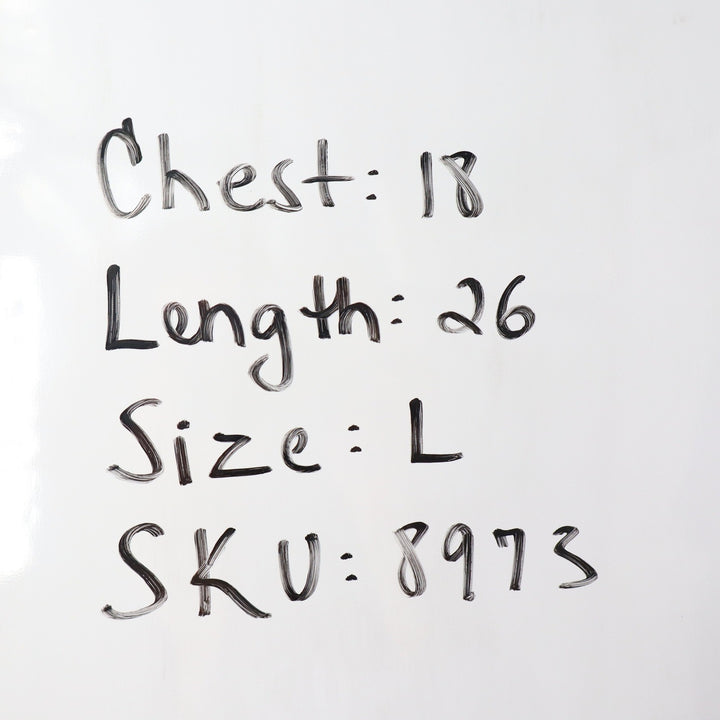 Chest: 18
Length: 26
Size: L
SKU: 8973